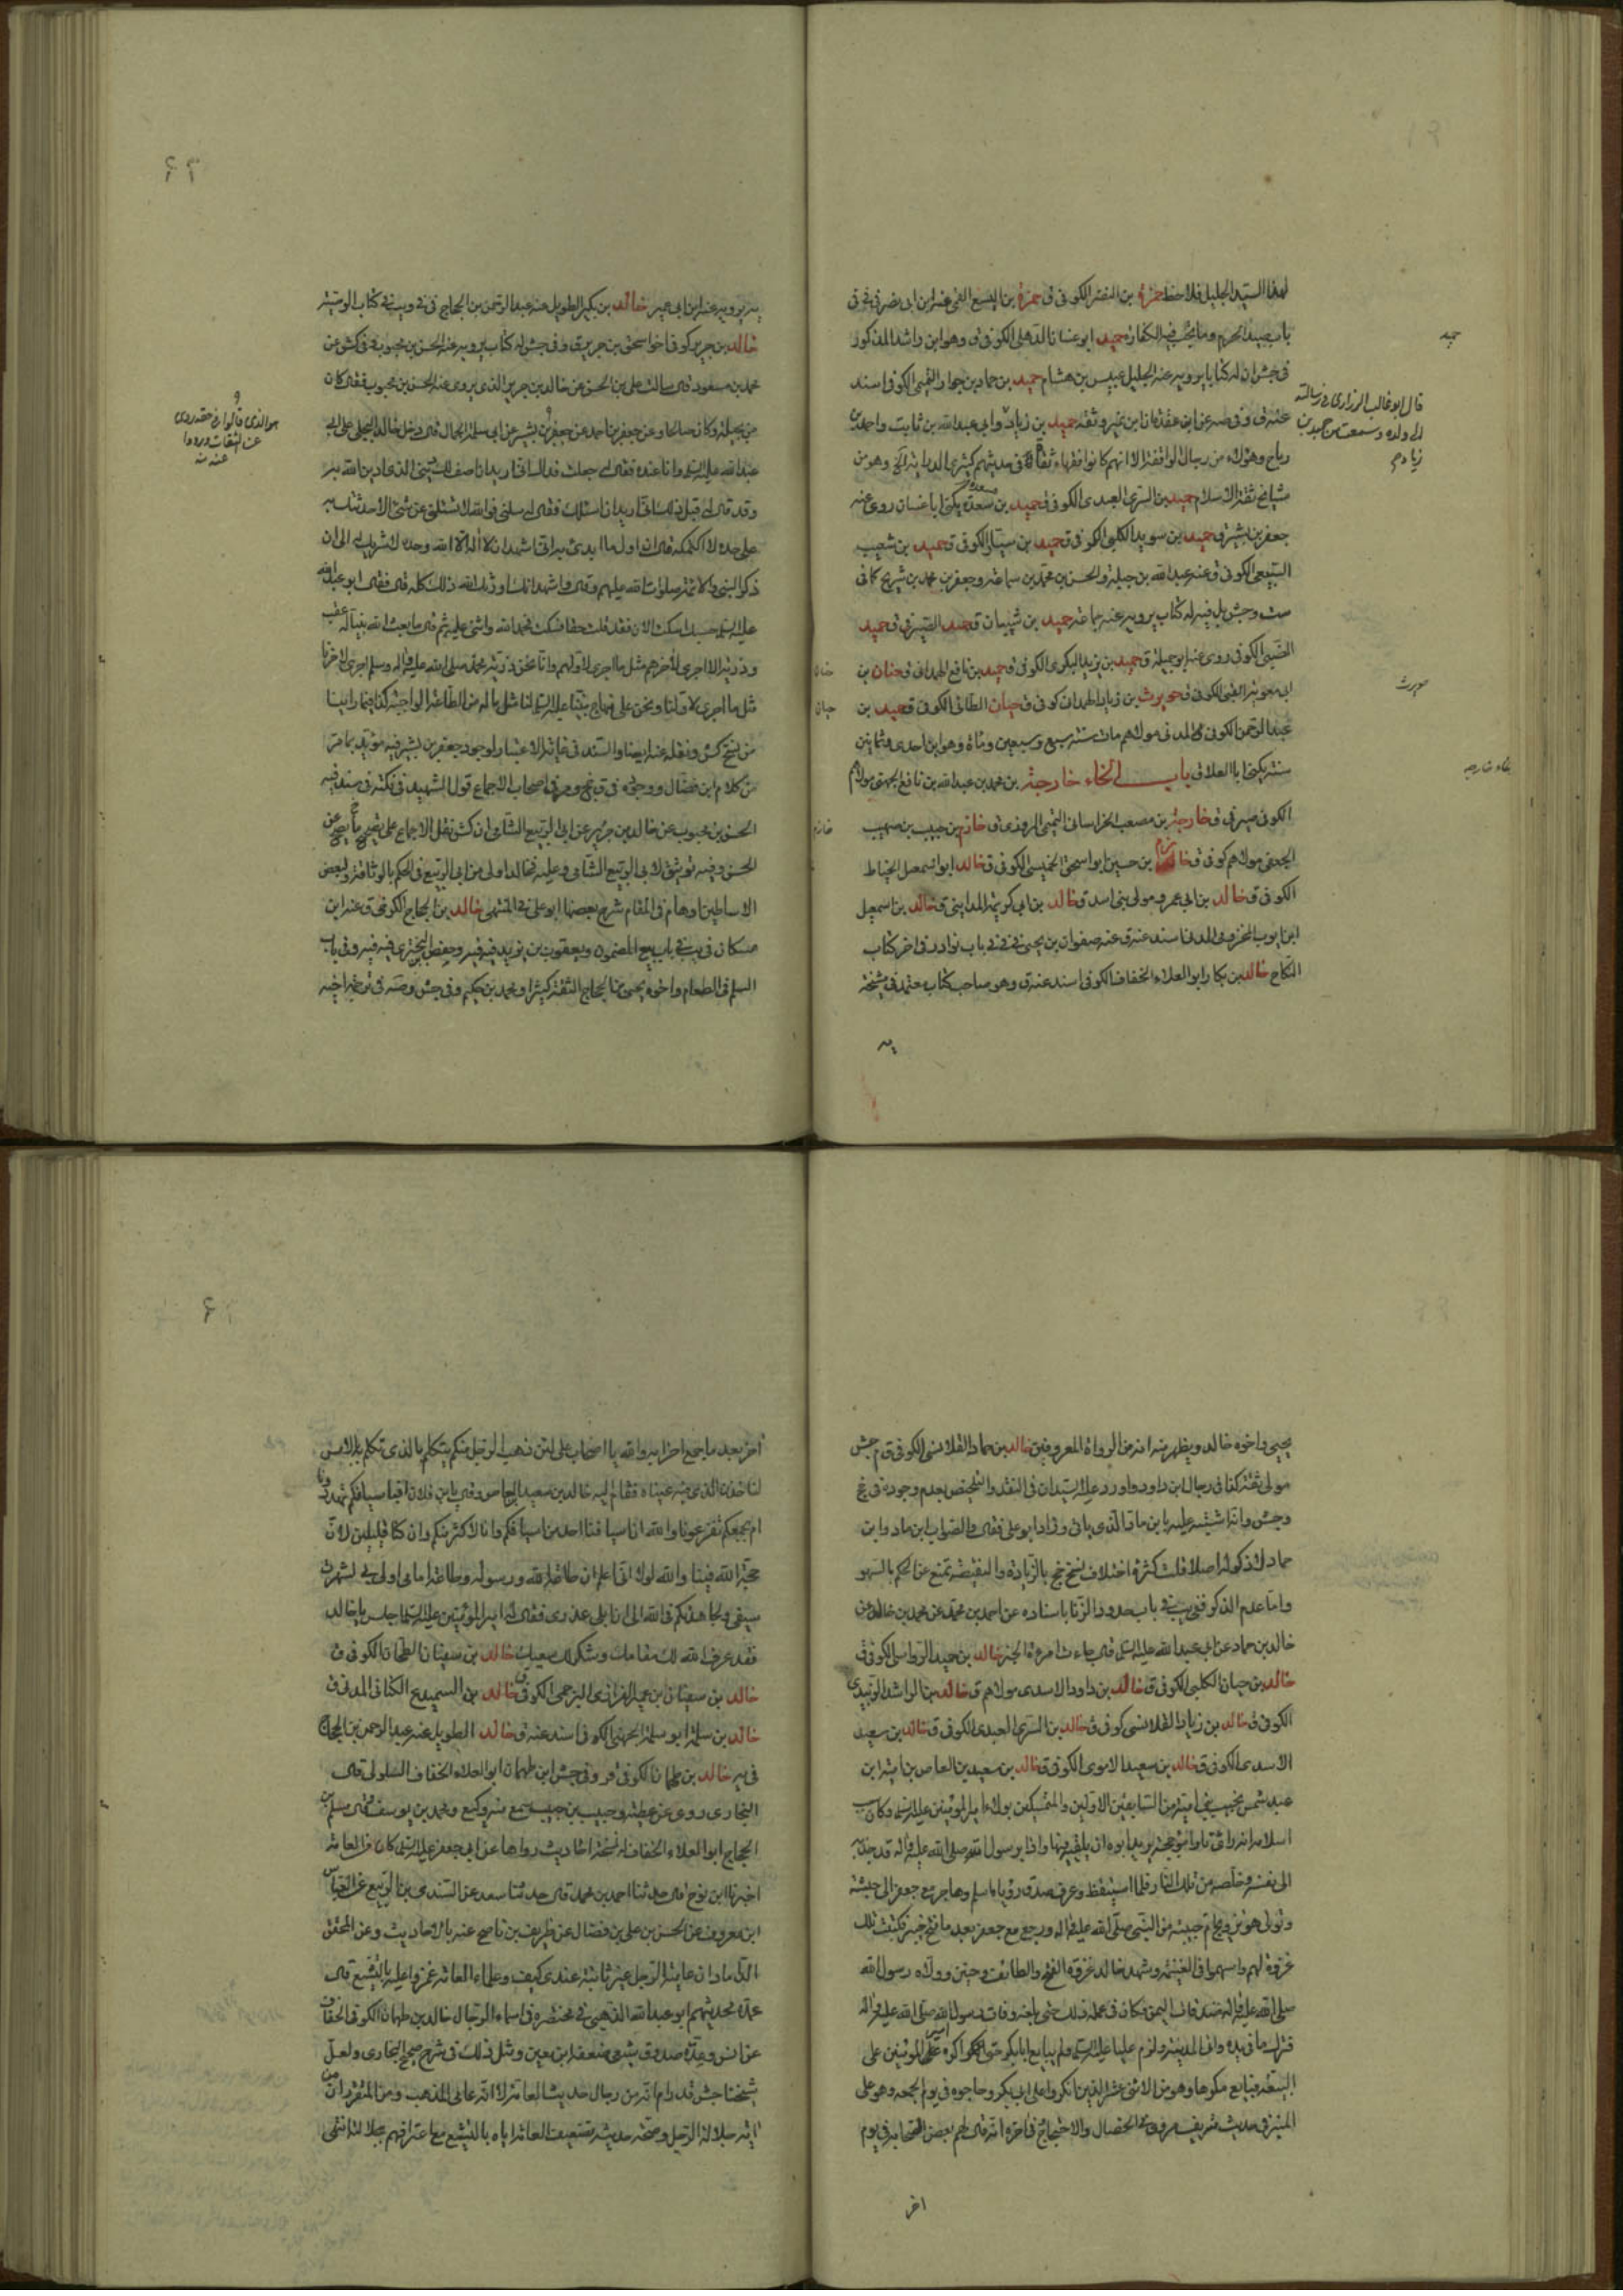 لهذا السيد الجليل فلاحظ حمزة بن النضر الكوفي ق حمزة بن اليسع القمي عنه ابن ابي نصر في في
باب صيد الحرم وما يجب فيه الكفارة حميد ابو غسان الذهلي الكوفي ق وهو ابن راشد المذكور
في جش ان له كتابا يرويه عنه الجليل عبيس بن هشام حميد بن حماد بن حوار التميمي الكوفي اسند
عنه ق وفي صه عن ابن عقدة انا ابن نمير وثقه حميد بن زياد وابي عبد الله بن ثابت واحمد بن
رباح وهؤلاء من رجال الواقفة الا انهم كانوا فقهاء ثقات في حديثهم كثيري الدراية الخ وهو من
مشايخ ثقة الاسلام حميد بن السري العبدي الكوفي ق حميد بن سعدة يكنى ابا غسان روى عنه
جعفر بن بشير ق حميد بن سويد الكلبي الكوفي ق حميد بن سيار الكوفي ق حميد بن شعيب
السبيعي الكوفي ق عنه عبد الله بن جبلة والحسن بن محمد بن سماعة وجعفر بن محمد بن شريح كما في
ست وجش بل فيه له كتاب يرويه عنه جماعة حميد بن شيبان ق حميد الصيرفي ق حميد
الضبي الكوفي روى عنه ابو جميلة ق حميد بن زيد البكري الكوفي ق حميد بن نافع الهمداني ق حنان بن
ابي معوية القبي الكوفي ق حويرث بن زياد الهمداني كوفي ق حيان الطائي الكوفي ق حميد بن
عبد الرحمن الكوفي المدني مولاهم مات سنة سبع وسبعين ومائة وهو ابن احدى وثمانين
سنة يكنى ابا العلاق باب الخاء خارجة بن محمد بن عبد الله بن نافع الجهني مولاهم
الكوفي صيرفي ق خارجة بن مصعب الخراساني التميمي المروزي ق خازم بن حبيب بن صهيب
الجعفي مولاهم كوفي ق خازم بن حسين ابو اسحق الخميسي الكوفي ق خالد ابو اسمعيل الخياط
الكوفي ق خالد بن ابي عمرو مولى بني اسد ق خالد بن ابي كريمة المدايني ق خالد بن اسمعيل
ابن ايوب المخزومي المدني اسند عنه ق عنه صفوان بن يحيى في في باب نوادر في اخر كتاب
النكاح خالد بن بكار ابو العلاء الخفاف الكوفي اسند عنه ق وهو صاحب كتاب معتمد في مشيخة
يه
حميد
قال ابو غالب الزراري في رسالته
الى ولده وسمعت من حميد بن
زياد
حويرث
خاء خارجه
حنان
حيان
خازم
يه يرويه عنه ابن ابي عمير خالد بن بكير الطويل عنه عبد الرحمن بن الحجاج في في ويب في كتاب الوصية
خالد بن جرير كوفي اخو اسحق بن جرير ق وفي جش له كتاب يرويه عنه الحسن بن محبوب وفي كش عن
محمد بن مسعود قال سالت علي بن الحسن عن خالد بن جرير الذي يروي عنه الحسن بن محبوب فقال كان
من بجيلة وكان صالحا وعن جعفر بن احمد عن جعفر بن بشير عن ابي سلمة الجمال قال دخل خالد البجلي على ابي
عبد الله عليه السلام وانا عنده فقال له جعلت فداك اني اريد ان اصف لك ديني الذي ادين الله به
وقد قال له قبل ذلك اني اريد ان اسئلك فقال له سلني فوالله لا تسئلني عن شئ الا حدثتك به
على حده لا اكتمكه قال ان اول ما ابدئ به اني اشهد ان لا اله الا الله وحده لا شريك له الى ان
ذكر النبي والائمة صلوات الله عليهم وقال واشهد انك اورثك الله ذلك كله قال فقال ابو عبد الله
عليه السلام حسبك اسكت الان فقد قلت حقا فسكت فحمد الله واثنى عليه ثم قال ما بعث الله نبيا له عقب
وذرية الا اجرى لاخرهم مثل ما اجرى لاولهم وانا نحن ذرية محمد صلى الله عليه واله وسلم اجرى لاخرنا
مثل ما اجرى لاولنا ونحن على منهاج نبينا عليه السلام لنا مثل ما له من الطاعة الواجبة كذا فيما راينا
من نسخ كش ونقله عنه ايضا والسند في غاية الاعتبار لوجود جعفر بن بشير فيه مؤيد بما مر
من كلام ابن فضال ووجوه في ق جخ ومر في اصحاب الاجماع قول الشهيد في نكته في سند فيه
الحسن بن محبوب عن خالد بن جرير عن ابي الربيع الشامي ان كش نقل الاجماع على تصحيح ما يصح عن
الحسن وفيه توثيق لابي الربيع الشامي وعليه فخالد اولى من ابي الربيع في الحكم بالوثاقة ولبعض
الاساطين اوهام في المقام شرح بعضها ابو علي في المنتهى خالد بن الحجاج الكوفي ق عنه ابن
مسكان في يب في باب بيع المضمون ويعقوب بن يزيد فيه فيه وحفص البختري فيه فيه وفي باب
السلم في الطعام واخوه يحيى بن الحجاج الثقة كثيرا ومحمد بن حكيم وفي جش وصه في ترجمة اخيه
هو الذي قالوا في حقه روى
عن الثقات ورووا
عنه منه
يحيى واخوه خالد ويظهر منه انه من الرواة المعروفين خالد بن حماد القلانسي الكوفي ق م جش
مولى ثقة كذا في رجال ابن داود واورد عليه السيدان في النقد والتلخيص بعدم وجوده في جخ
وجش وانه اشتبه عليه بابن ماد الذي ياتي وزاد ابو علي فقال والصواب ابن ماد وابن
حماد لا ذكر له اصلا قلت كثرة اختلاف نسخ جخ بالزيادة والنقيصة تمنع عن الحكم بالسهو
واما عدم الذكر ففي يب في باب حدود الزنا باسناده عن احمد بن محمد عن محمد بن خالد عن
خالد بن حماد عن ابي عبد الله عليه السلام قال جاءت امرأة الخبر خالد بن حميد الرواسي الكوفي ق
خالد بن حيان الكلبي الكوفي ق خالد بن داود الاسدي مولاهم ق خالد بن الراشد الزبيدي
الكوفي ق خالد بن زياد القلانسي كوفي ق خالد بن السري العبدي الكوفي ق خالد بن سعيد
الاسدي الكوفي ق خالد بن سعيد الاموي الكوفي ق خالد بن سعيد بن العاص بن امية ابن
عبد شمس نجيب بني امية من السابقين الاولين والمتمسكين بولاء امير المؤمنين عليه السلام وكان سبب
اسلامه انه راى نارا مؤججة يريد ابوه ان يلقيه فيها واذا برسول الله صلى الله عليه واله قد جذبه
الى نفسه وخلصه من تلك النار فلما استيقظ وعرف صدق رؤياه اسلم وهاجر مع جعفر الى حبشة
وتولى هو تزويج ام حبيبة من النبي صلى الله عليه واله ورجع مع جعفر بعد ما فتح خيبر فكتب تلك
غزوة لهم واسهموا في الغنيمة وشهد خالد غزوة الفتح والطائف وحنين وولاه رسول الله
صلى الله عليه واله صدقات اليمن فكان في عمله ذلك حتى بلغه وفات رسول الله صلى الله عليه واله
فترك ما في يده واتى المدينة ولزم عليا عليه السلام ولم يبايع ابابكر حتى اكره امير المؤمنين على
البيعة فبايع مكرها وهو من الاثنى عشر الذين انكروا على ابي بكر وحاجوه في يوم الجمعة وهو على
المنبر في حديث شريف مروي في الخصال والاحتجاج في اخره انه قال لهم بعض الصحابة في يوم
اخر
آخر بعد ما جمع احزابه والله يا اصحاب علي لئن ذهب الرجل منكم يتكلم بالذي تكلم به بالامس
لناخذن الذي فيه عيناه فقام اليه خالد بن سعيد العاص وقال يابن فلان افباسيافكم تهددونا
ام بجمعكم تفزعونا والله ان اسيافنا احد من اسيافكم وانا لاكثر منكم وان كنا قليلين لان
حجة الله فينا والله لولا اني اعلم ان طاعة الله ورسوله وطاعة امامي اولى بي لشهرت
سيفي ولجاهدتكم في الله الى ان ابلي عذري فقال له امير المؤمنين عليه السلام اجلس يا خالد
فقد عرف الله لك مقامك وشكر لك سعيك خالد بن سفيان الطحان الكوفي ق
خالد بن سفيان بن عمير الفزاري البرجمي الكوفي ق خالد بن السميدع الكناني المدني ق
خالد بن سلمة ابو سلمة الجهني الكوفي اسند عنه ق خالد الطويل عنه عبد الرحمن بن الحجاج
في يه خالد بن طهمان الكوفي قر وفي جش ابن طهمان ابو العلاء الخفاف السلولي قال
البخاري روى عن عطية وحبيب بن حبيب سمع منه وكيع ومحمد بن يوسف وقال مسلم بن
الحجاج ابو العلاء الخفاف له نسخة احاديث رواها عن ابي جعفر عليه السلام كان من العامة
اخبرنا ابن نوح قال حدثنا احمد بن محمد قال حدثنا سعد عن السندي بن الربيع عن العباس
ابن معروف عن الحسن بن علي بن فضال عن ظريف بن ناصح عنه بالاحاديث وعن المحقق
الداماد ان عامية الرجل غير ثابتة عندي كيف وعلماء العامة غمزوا عليه بالتشيع قال
عمدة محدثيهم ابو عبد الله الذهبي في مختصره في اسماء الرجال خالد بن طهمان الكوفي الخفاف
عن انس وعدة صدوق شيعي ضعفه ابن معين ومثل ذلك في شرح صحيح البخاري ولعل
شيخنا جش قد رام انه من رجال حديث العامة لا انه عامي المذهب ومن المتقرر ان من
اية جلالة الرجل وصحة حديثه تضعيف العامة اياه بالتشيع مع اعترافهم بجلالته انتهى